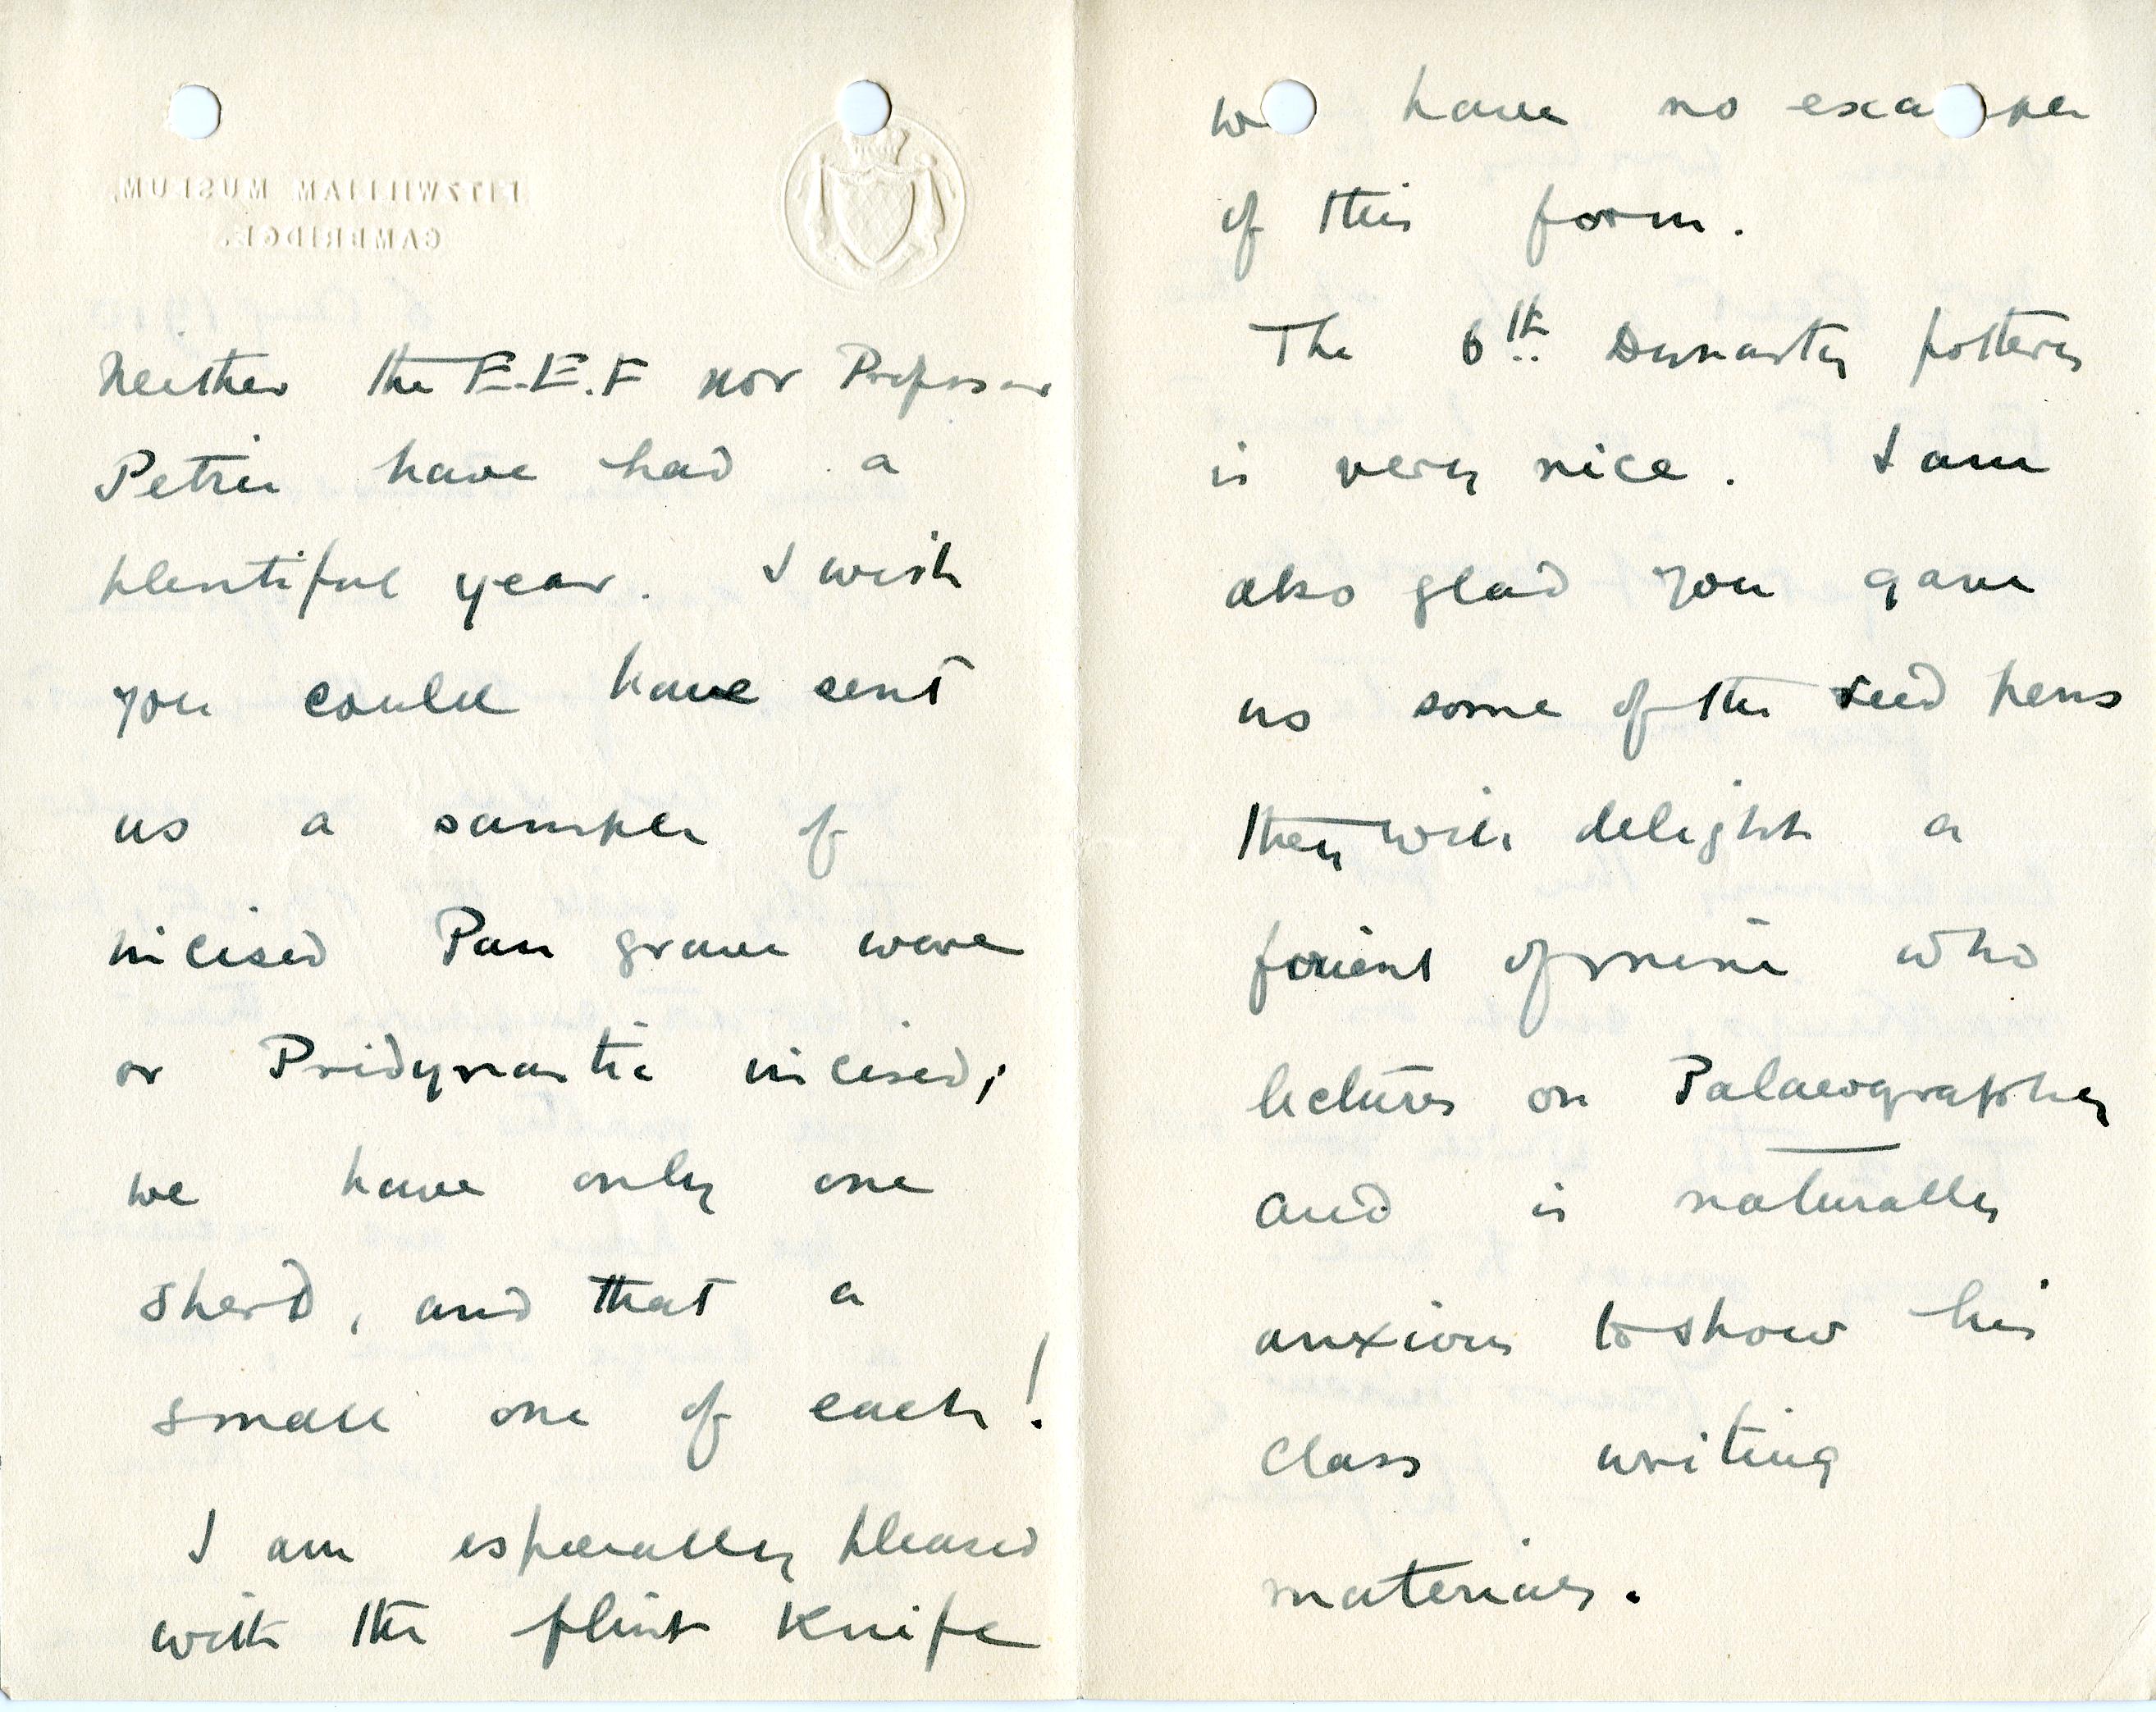 FITZWILLIAM MUSEUM,
CAMBRIDGE.
Neither the E.E.F nor Professor
Petrie have had a
plentiful year. I wish
you could have sent
us a sample of
incised Pan grave ware
or Predynastic incised;
we have only one
sherd, and that a
small one of each!
I am especially pleased
with the flint Knife
we have no example
of this form.
The 6th Dynasty pottery
is very nice. I am
also glad you gave
us some of the reed pens
they will delight a
friend of mine who
lectures on Palaeography
and is naturally
anxious to show his
class writing
materials.